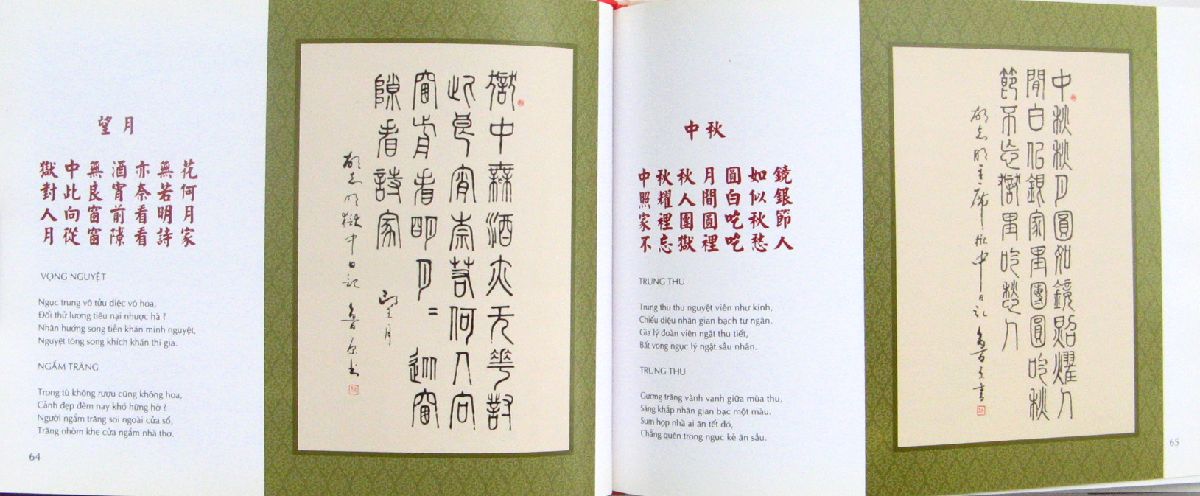 望月
獄中無酒亦無花
對此良宵奈若何
人向窗前看明月
月從窗隙看詩家
VỌNG NGUYỆT
Ngục trung vô tửu diệc vô hoa,
Đối thử lương tiêu nại nhược hà ?
Nhân hướng song tiền khán minh nguyệt,
Nguyệt tòng song khích khán thi gia.
NGẮM TRĂNG
Trong tù không rượu cũng không hoa,
Cảnh đẹp đêm nay khó hững hờ !
Người ngắm trăng soi ngoài cửa sổ,
Trăng nhòm khe cửa ngắm nhà thơ.
64
獄中無酒亦无花對
此良宵奈若何人向
窗前看明月=從窗
隙看詩家
望月
胡志明獄中日記
中秋
中秋秋月圓如鏡
照耀人間白似銀
家裡團圓吃秋節
不忘獄裡吃愁人
TRUNG THU
Trung thu thu nguyệt viên như kính,
Chiếu diệu nhân gian bạch tự ngân,
Gia lý đoàn viên ngật thu tiết,
Bất vong ngục lý ngật sầu nhân.
TRUNG THU
Gương trăng vành vạnh giữa mùa thu,
Sáng khắp nhân gian bạc một màu,
Sum họp nhà ai ăn tết đó,
Chẳng quên trong ngục kẻ ăn sầu.
中秋秋月圓如鏡照耀人
間白似銀家里團圓吃秋
節不忘獄里吃愁人
胡志明主席獄中日記
65